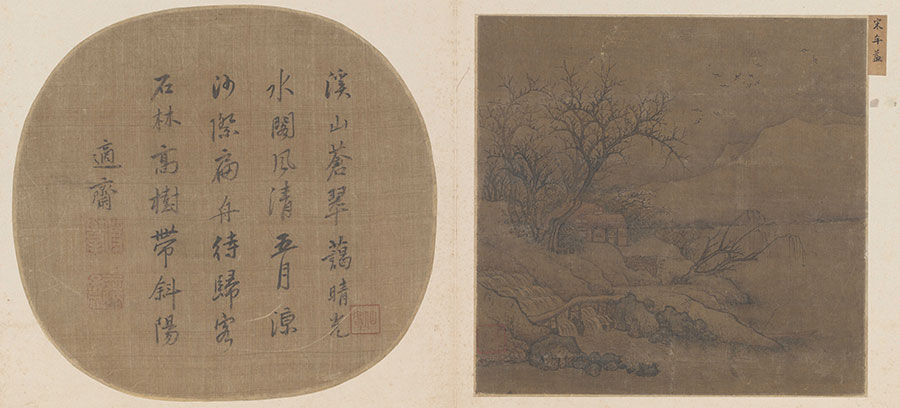 宋牟益
溪山蒼翠藹晴光
水閣風清五月凉
沙際扁舟待歸客
石林高樹帶斜陽
適齋